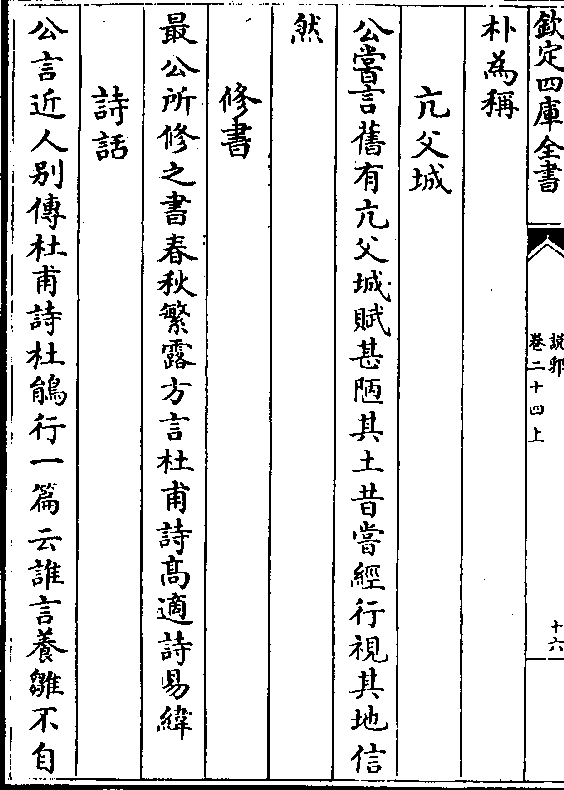 欽定四庫全書
說郛
卷二十四上
十六
朴為稱
亢父城
公嘗言舊有亢父城賦甚陋其土昔嘗經行視其地信
然
修書
最公所修之書春秋繁露方言杜甫詩髙適詩易緯
詩話
公言近人别傳杜甫詩杜鵑行一篇云誰言養雛不自